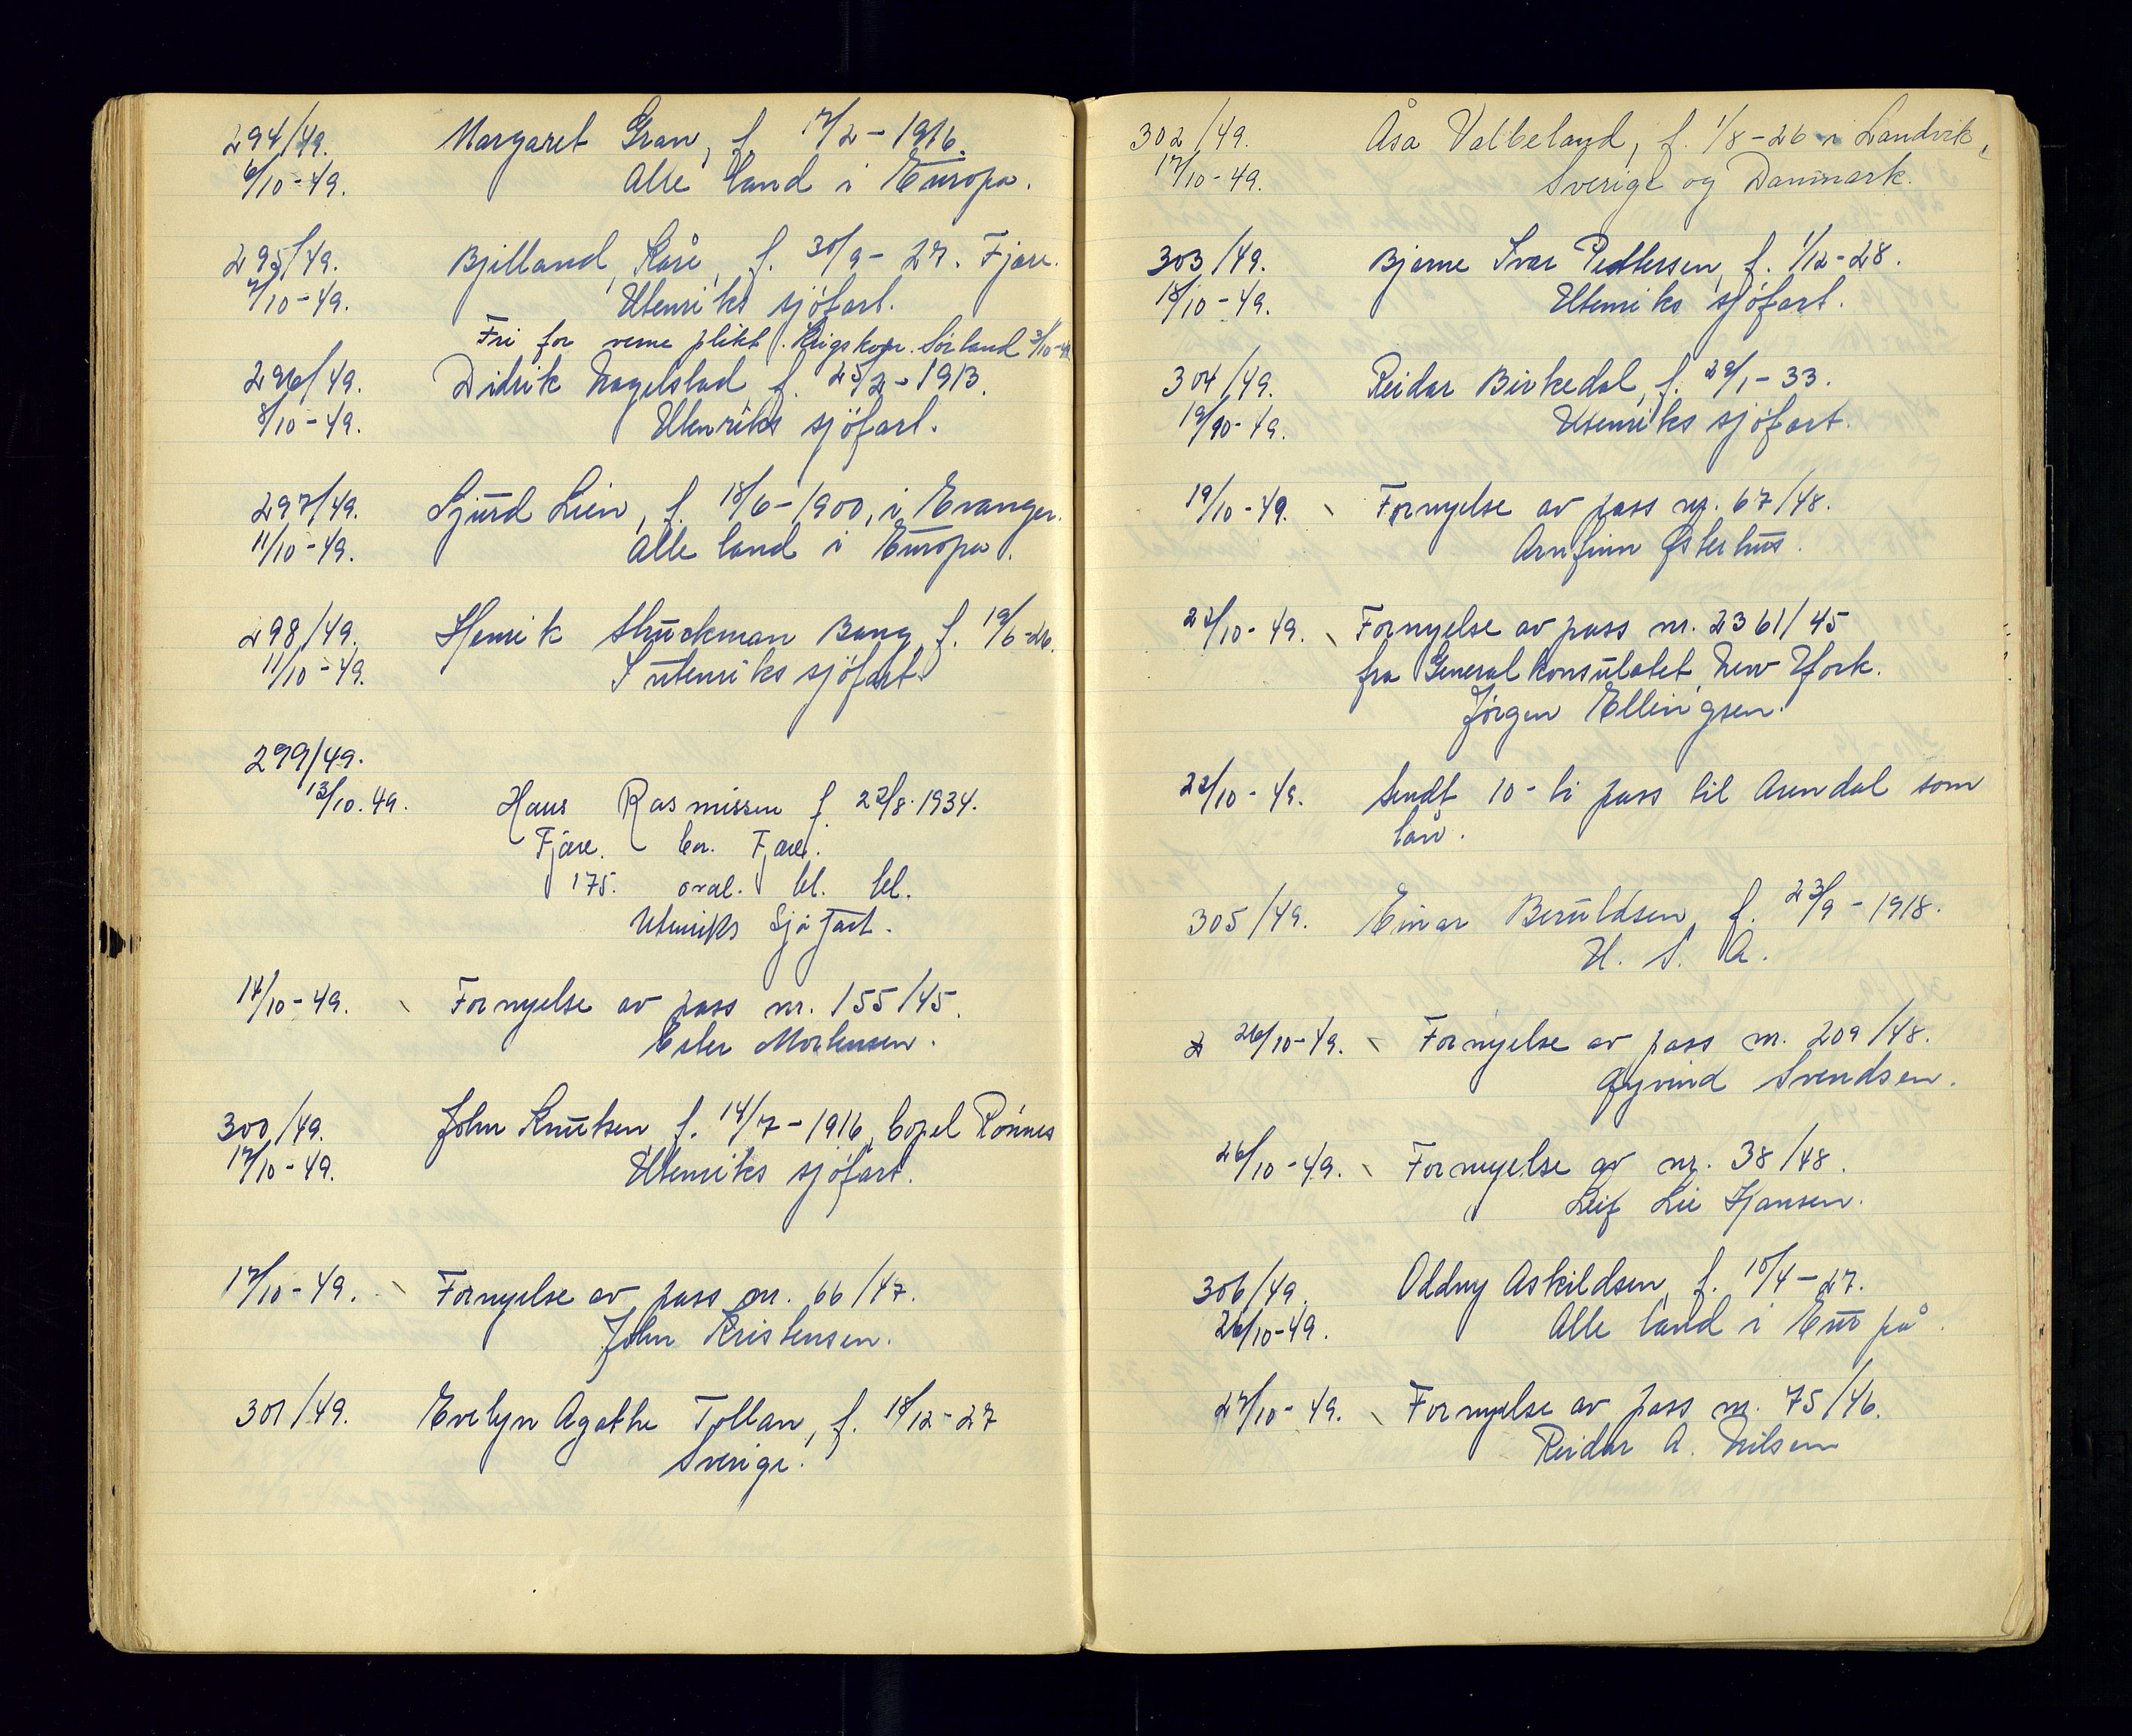 294/49. Margaret Gran, f. 17/2 - 1916.
6/10 - 49. Alle land i Europa.
295/49. Bjelland, Kåre, f. 30/9 - 27. Fjære.
7/10 - 49. Utenriks sjöfart.
Fri for verne plikt. Krigskom. Sörland 3/10-49
296/49. Didrik Nagelstad, f. 25/2 - 1913.
8/10 - 49. Utenriks sjöfart.
297/49. Sjurd Lien, f. 18/6 - 1900, i Evanger.
11/10 - 49. Alle land i Europa.
298/49. Henrik Struckman Bang, f. 19/6 - 26.
11/10 - 49. I utenriks sjöfart.
299/49.
13/10. 49. Hans Rasmissen f. 22/8. 1934.
Fjære. bor. Fjære.
175. oval. bl. bl.
Utenriks Sjöfart.
14/10 - 49. Fornyelse av pass nr. 155/45.
Ester Mortensen.
300/49. John Knutsen, f. 14/7 - 1916, bopel Rönnes
17/10 - 49. Utenriks sjöfart.
17/10 - 49. Fornyelse av pass nr. 66/47.
John Kristensen.
301/49. Evelyn Agathe Tollan, f. 18/12 - 27
Sverige.
302/49. Åsa Valbeland, f. 1/8 - 26 i Landvik,
17/10 - 49. Sverige og Danmark.
303/49. Bjarne Ivar Pedtersen, f. 1/12 - 28.
18/10 - 49. Utenriks sjöfart.
304/49. Reidar Birkedal, f. 29/1 - 33.
19/10 - 49. Utenriks sjöfart.
19/10 - 49. Fornyelse av pass nr. 67/48.
Arnfinn Østerhus.
22/10 - 49. Fornyelse av pass nr. 2361/45
fra Generalkonsulatet, New York.
Jörgen Ellingsen.
22/10 - 49. Sendt 10 - ti pass til Arendal som
lån.
305/49. Einar Beruldsen, f. 23/9 - 1918.
U. S. A.
26/10 - 49. Fornyelse av pass nr. 209/48.
Øyvind Svendsen.
26/10 - 49. Fornyelse av nr. 38/48.
Leif Lie Hansen.
306/49. Oddny Askildsen, f. 18/4 - 27.
26/10 - 49. Alle land i Europa.
27/10 - 49. Fornyelse av pass nr. 75/46.
Reidar A. Nilsen